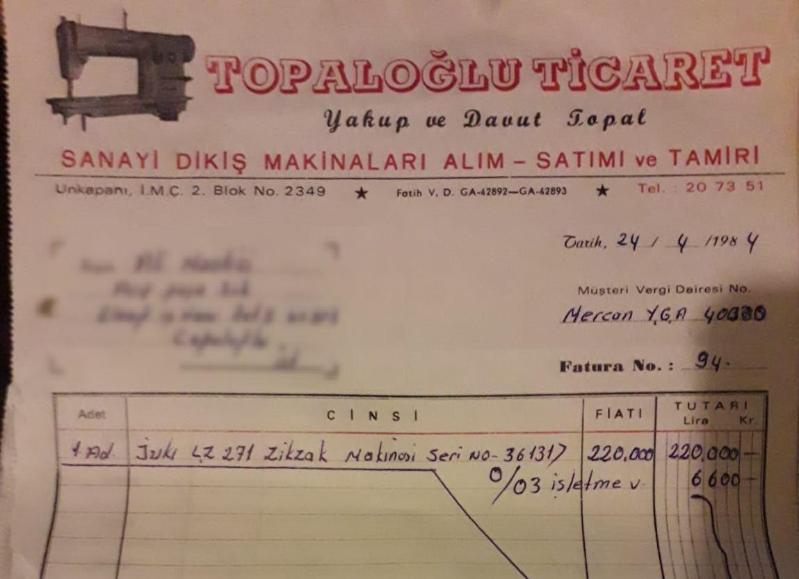 TOPALOĞLU TİCARET
Yakup ve Davut Topal
SANAYİ DİKİŞ MAKİNALARI ALIM – SATIMI ve TAMİRİ
Unkapanı, İ.M.Ç. 2. Blok No. 2349 ★ Fatih V. D. GA-42892—GA-42893 ★ Tel. : 20 73 51
Tarih, 24 / 4 /1984
Müşteri Vergi Dairesi No.
Mercan Y.G.A
Fatura No. : 94.
Adet CİNSİ FİATI TUTARI
Lira Kr.
1 Ad. Juki LZ 271 Zikzak Makinası Seri NO- 361317 220,000 220,000 —
0/03 işletme v. 6 600 —